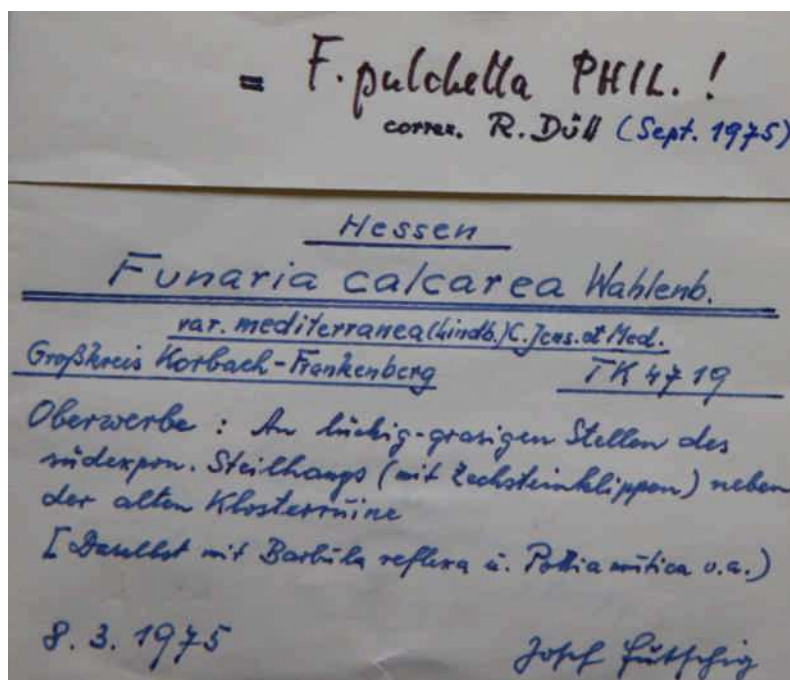 = F. pulchella PHIL. !
correx. R. Düll (Sept. 1975)
Hessen
Funaria calcarea Wahlenb.
var. mediterranea (Lindb.) C. Jens. et Med.
Großkreis Korbach-Frankenberg TK 4719
Oberwerbe : An lückig-grasigen Stellen des
südexpon. Steilhangs (mit Zechsteinklippen) neben
der alten Klosterruine
[Daselbst mit Barbula reflexa u. Pottia mutica u.a.)
8. 3. 1975 Josef Futschig